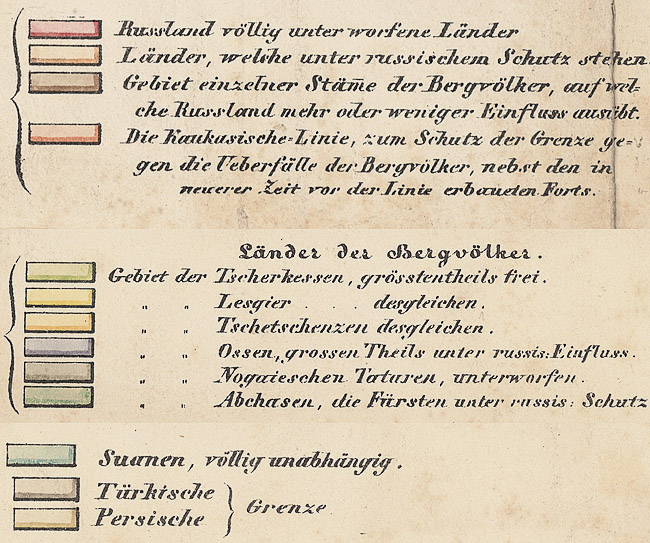 Russland völlig unterworfene Länder
Länder, welche unter russischem Schutz stehen
Gebiet einzelner Stäm̄e der Bergvölker, auf wel-
che Russland mehr oder weniger Einfluss ausübt.
Die Kaukasische=Linie, zum Schutz der Grenze ge=
gen die Ueberfälle der Bergvölker, nebst den in
neuerer Zeit vor der Linie erbaueten Forts.
Länder der Bergvölker.
Gebiet der Tscherkessen, grösstentheils frei.
„ „ Lesgier . . desgleichen.
„ „ Tschetschenzen desgleichen.
„ „ Ossen, grossen Theils unter russis: Einfluss.
„ „ Nogaieschen Tataren, unterworfen.
„ „ Abchasen, die Fürsten unter russis: Schutz
Suanen, völlig unabhängig.
Türkische
Persische } Grenze